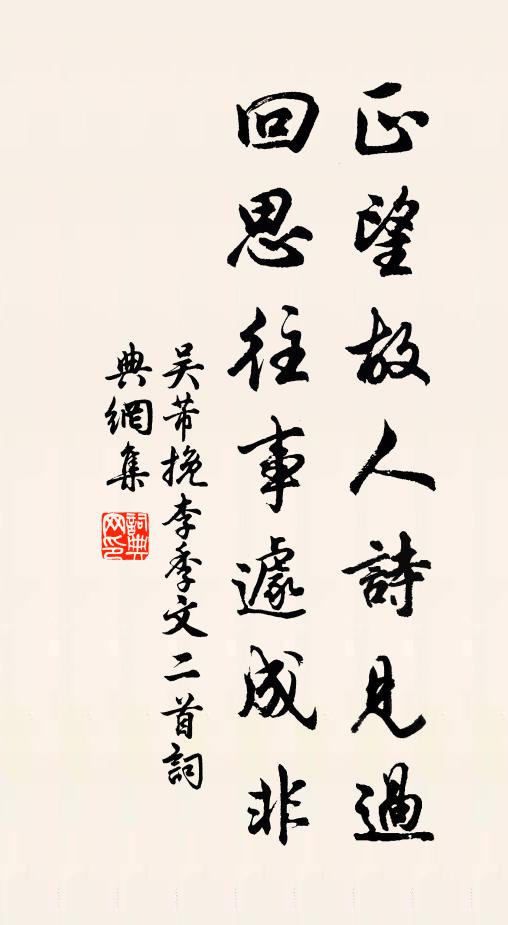 正望故人詩見過
回思往事遽成非
吳芾挽李季文二首詞
典網集
詞典網印